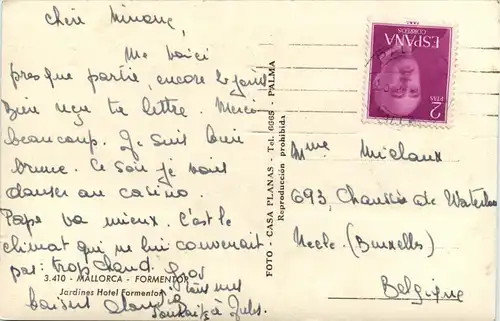 Chère Minane,
Me voici
presque partie, encore 12 jours
Bien reçu ta lettre. Merci
beaucoup. Je suis bien
brune. Ce soir je vais
danser au casino.
Papa va mieux. C'est le
climat qui ne lui convenait
pas: trop chaud. Gros
3.410 - MALLORCA - FORMENTOR
Jardines Hotel Formentor
baisers
Souhaits à Jules.
FOTO - CASA PLANAS - Tel. 6665 - PALMA
Reproducción prohibida
ESPAÑA
CORREOS
2
PTAS
Mme Michaux
693, Chaussée de Waterloo
(Bruxelles)
Belgique